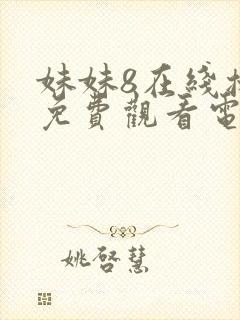 妹妹8在綫
免費觀看電
姚啓慧